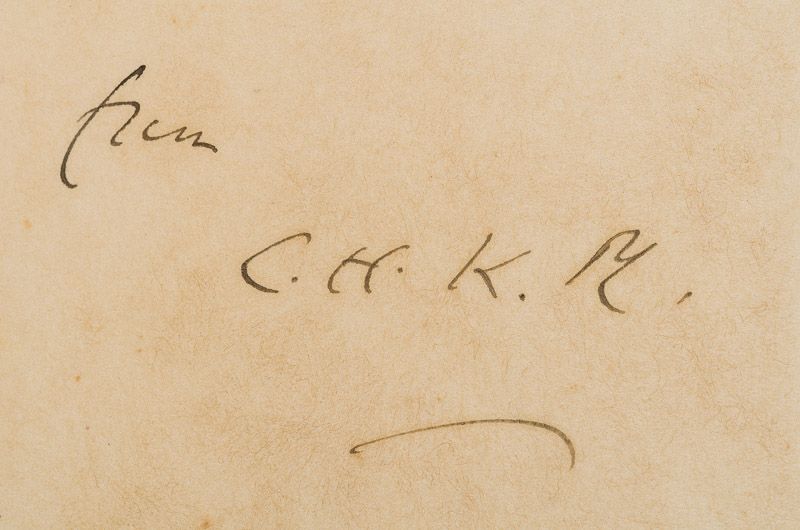 from
C. H. K. M.